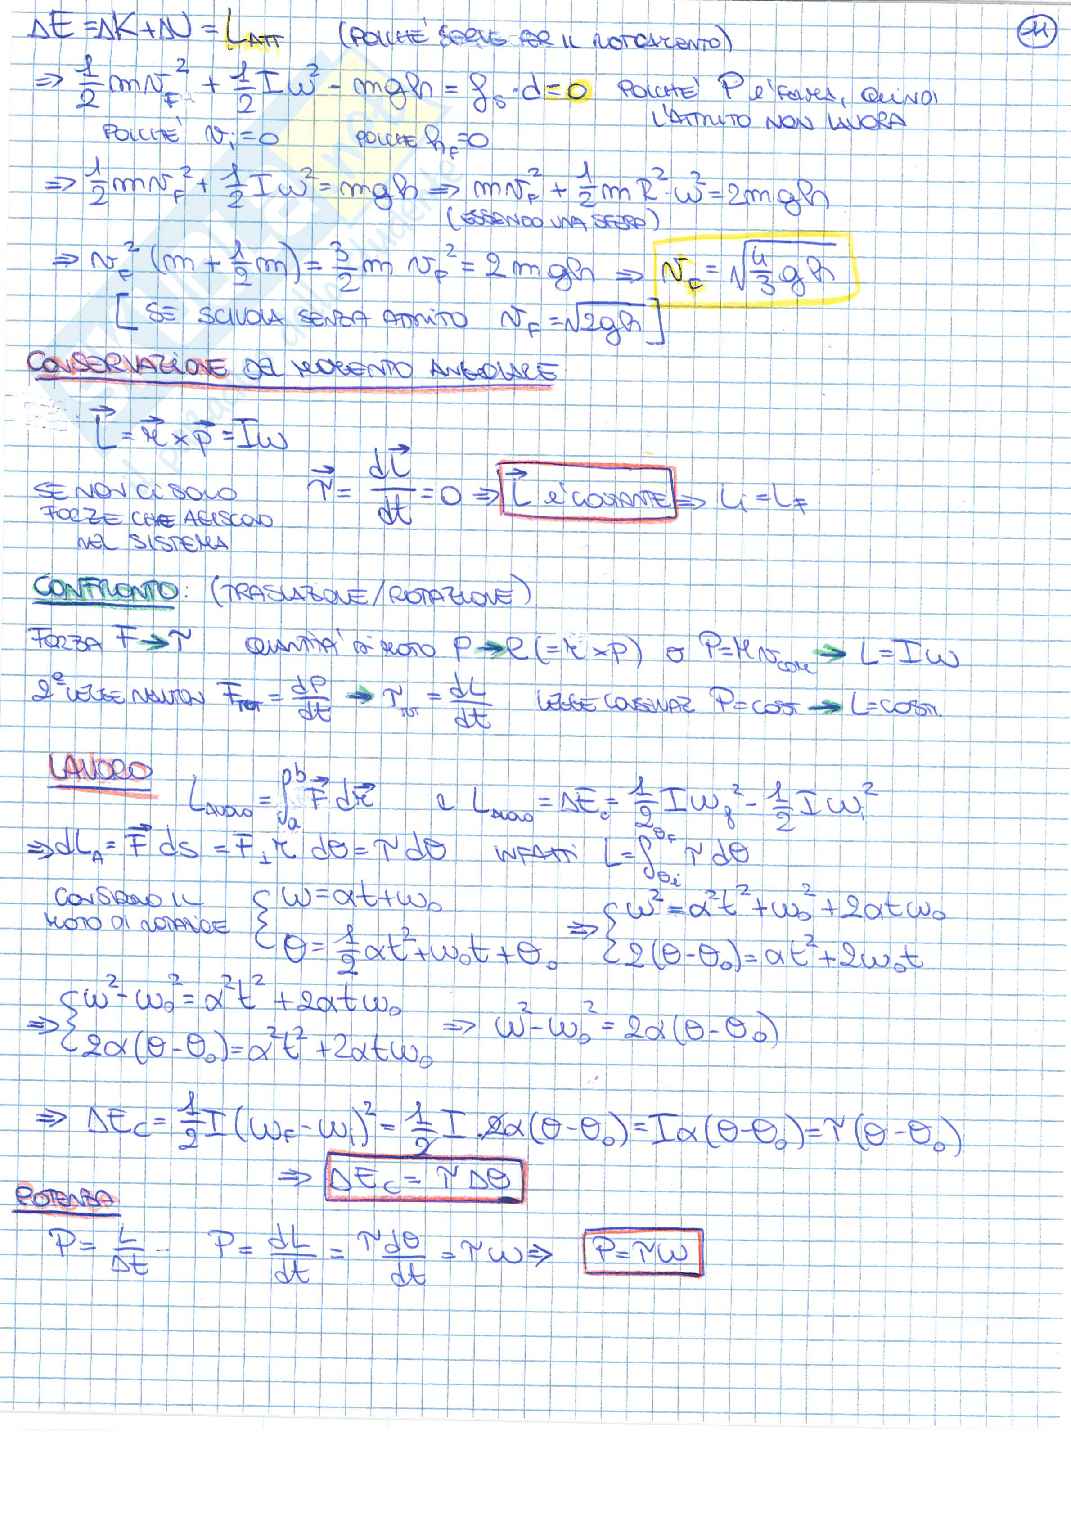 ΔE = ΔK + ΔU = L_ATT (POICHÉ SERVE PER IL ROTOLAMENTO) 11
⇒ 1/2 m v_F² + 1/2 I ω² - mgh = f_s · d = 0 POICHÉ P è FERMO, QUINDI
POICHÉ v_i = 0 POICHÉ h_F = 0 L'ATTRITO NON LAVORA
⇒ 1/2 m v_F² + 1/2 I ω² = mgh ⇒ m v_F² + 1/2 m R² · ω² = 2mgh
(ESSENDO UNA SFERA)
⇒ v_F² (m + 1/2 m) = 3/2 m v_F² = 2mgh ⇒ v_F = √(4/3 gh)
[SE SCIVOLA SENZA ATTRITO v_F = √(2gh)]
CONSERVAZIONE DEL MOMENTO ANGOLARE
L⃗ = r⃗ × p⃗ = Iω
SE NON CI SONO FORZE CHE AGISCONO NEL SISTEMA τ⃗ = dL⃗/dt = 0 ⇒ L⃗ è COSTANTE ⇒ L_i = L_F
CONFRONTO: (TRASLAZIONE/ROTAZIONE)
FORZA F → τ QUANTITÀ DI MOTO P → l (= r × p) o P = M v_COM → L = Iω
2ª LEGGE NEWTON F_TOT = dP/dt → τ_TOT = dL/dt LEGGE CONSERVAZ P = COST → L = COST.
LAVORO
L_LAVORO = ∫_a^b F⃗ dr⃗ e L_LAVORO = ΔE_c = 1/2 I ω_f² - 1/2 I ω_i²
⇒ dL_A = F⃗ ds = F_⊥ r dθ = τ dθ INFATTI L = ∫_θi^θF τ dθ
CONSIDERO IL MOTO DI ROTAZIONE { ω = αt + ω₀ ; θ = 1/2 αt² + ω₀t + θ₀ ⇒ { ω² = α²t² + ω₀² + 2αtω₀ ; 2(θ - θ₀) = αt² + 2ω₀t
⇒ { ω² - ω₀² = α²t² + 2αtω₀ ; 2α(θ - θ₀) = α²t² + 2αtω₀ ⇒ ω² - ω₀² = 2α(θ - θ₀)
⇒ ΔE_c = 1/2 I (ω_F - ω_i)² = 1/2 I · 2α(θ - θ₀) = Iα(θ - θ₀) = τ(θ - θ₀)
⇒ ΔE_c = τ Δθ
POTENZA
P = L/Δt P = dL/dt = τdθ/dt = τω ⇒ P = τω